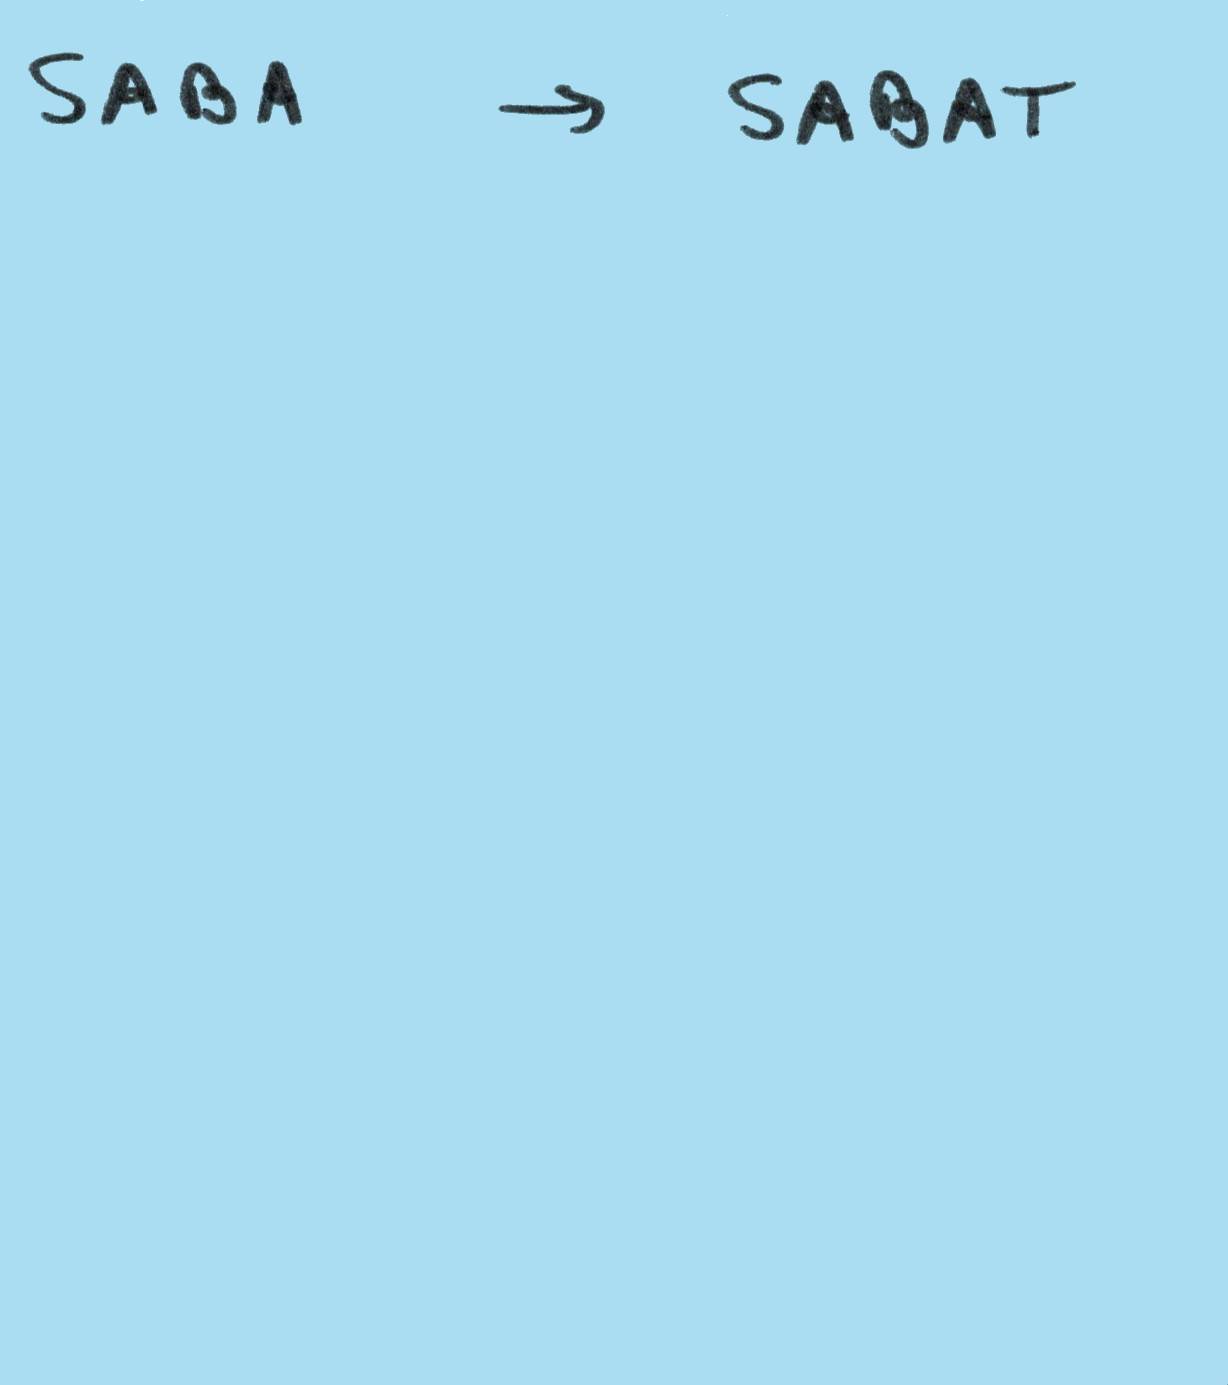 SABA → SABAT